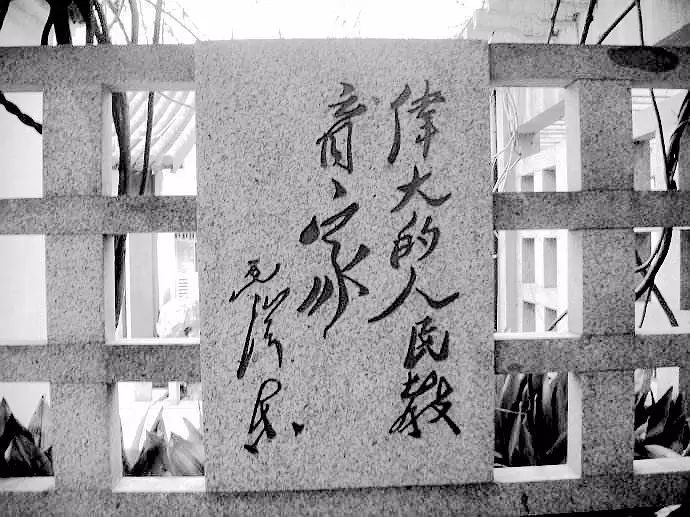 偉大的人民教
育家
毛澤東